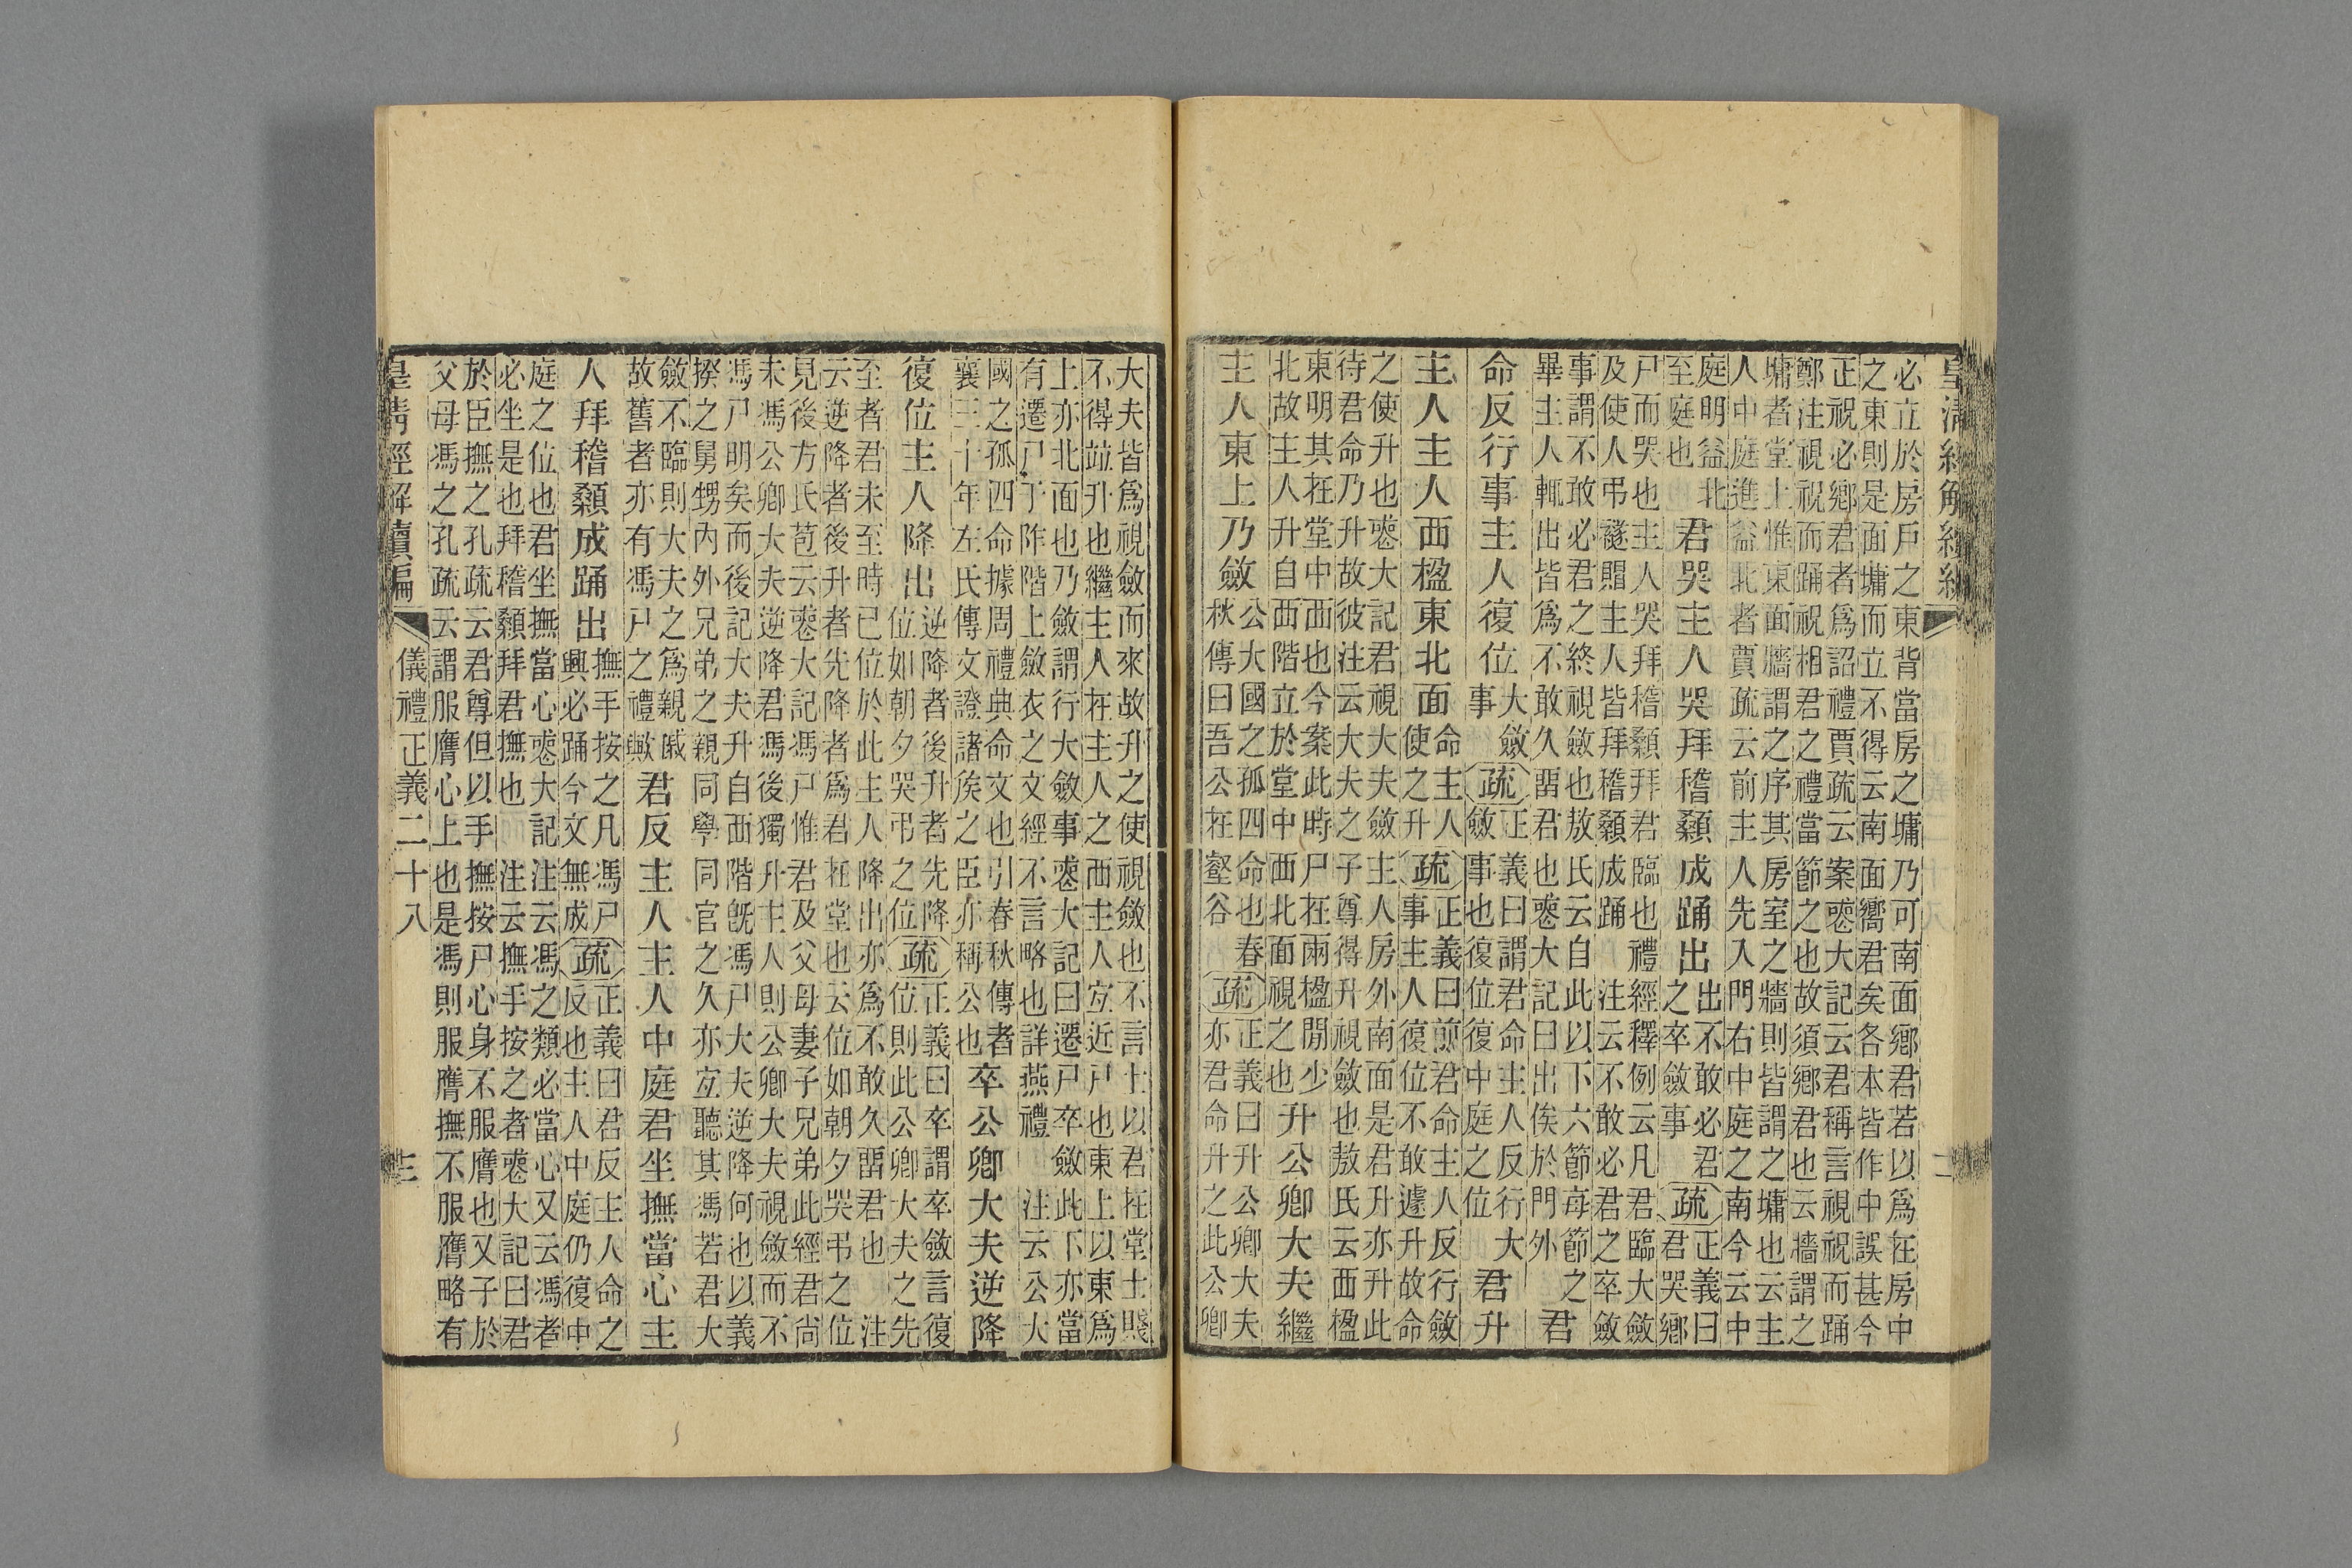 皇清經解續編
必立於房戶之東背當房之墉乃可南面鄉君若以爲在房中
之東則是面墉而立不得云南面嚮君矣各本皆作中誤甚今
正祝必鄉君者爲詔禮賈疏云案喪大記云君稱言視祝而踊
鄭注視祝而踊祝相君之禮當節之也故須鄉君也云牆謂之
墉者堂上惟東面牆謂之序其房室之牆則皆謂之墉也云主
人中庭進益北者賈疏云前主人先入門右中庭之南今云中
庭明益北至庭也君哭主人哭拜稽顙成踊出出不敢必君之卒斂事疏正義曰君哭鄉
尸而哭也主人哭拜稽顙拜君臨也禮經釋例云凡君臨大斂
及使人弔襚賵主人皆拜稽顙成踊注云不敢必君之卒斂
事謂不敢必君之終視斂也敖氏云自此以下六節每節之
畢主人輒出皆爲不敢久畱君也喪大記曰出俟於門外君
命反行事主人復位大斂事疏正義曰謂君命主人反行大斂事也復位復中庭之位君升
主人主人西楹東北面命主人使之升疏正義曰前君命主人反行斂事主人復位不敢遽升故命
之使升也喪大記君視大夫斂主人房外南面是君升亦升此
待君命乃升故彼注云大夫之子尊得升視斂也敖氏云西楹
東明其在堂中西也今案此時尸在兩楹閒少北故主人升自西階立於堂中西北面視之也升公卿大夫繼
主人東上乃斂公大國之孤四命也春秋傳曰吾公在壑谷疏正義曰升公卿大夫亦君命升之此公卿
大夫皆爲視斂而來故升之使視斂也不言士以君在堂士賤
不得竝升也繼主人在主人之西主人宜近尸也東上以東爲
上亦北面也乃斂謂行大斂事喪大記曰遷尸卒斂此下亦當
有遷尸于阼階上斂衣之文經不言略也詳燕禮注云公大
國之孤四命據周禮典命文也引春秋傳者襄三十年左氏傳文證諸侯之臣亦稱公也卒公卿大夫逆降
復位主人降出逆降者後升者先降位如朝夕哭弔之位疏正義曰卒謂卒斂言復位則此公卿大夫之先
至者君未至時已位於此主人降出亦爲不敢久畱君也注
云逆降者後升者先降者爲君在堂也云位如朝夕哭弔之位
見後方氏苞云喪大記馮尸惟君及父母妻子兄弟此經君尚
未馮公卿大夫逆降君馮後獨升主人則公卿大夫視斂而不
馮尸明矣而後記大夫升自西階旣馮尸大夫逆降何也以義
揆之舅甥內外兄弟之親同學同官之久亦宜聽其馮若君大
斂不臨則大夫之爲親戚故舊者亦有馮尸之禮歟君反主人主人中庭君坐撫當心主
人拜稽顙成踊出撫手按之凡馮尸興必踊今文無成疏正義曰君反主人命之反也主人中庭仍復中
庭之位也君坐撫當心喪大記注云馮之類必當心又云馮者
必坐是也拜稽顙拜君撫也注云撫手按之者喪大記曰君
於臣撫之孔疏云君尊但以手撫按尸心身不服膺也又子於
父母馮之孔疏云謂服膺心上也是馮則服膺撫不服膺略有
皇清經解續編
儀禮正義二十八